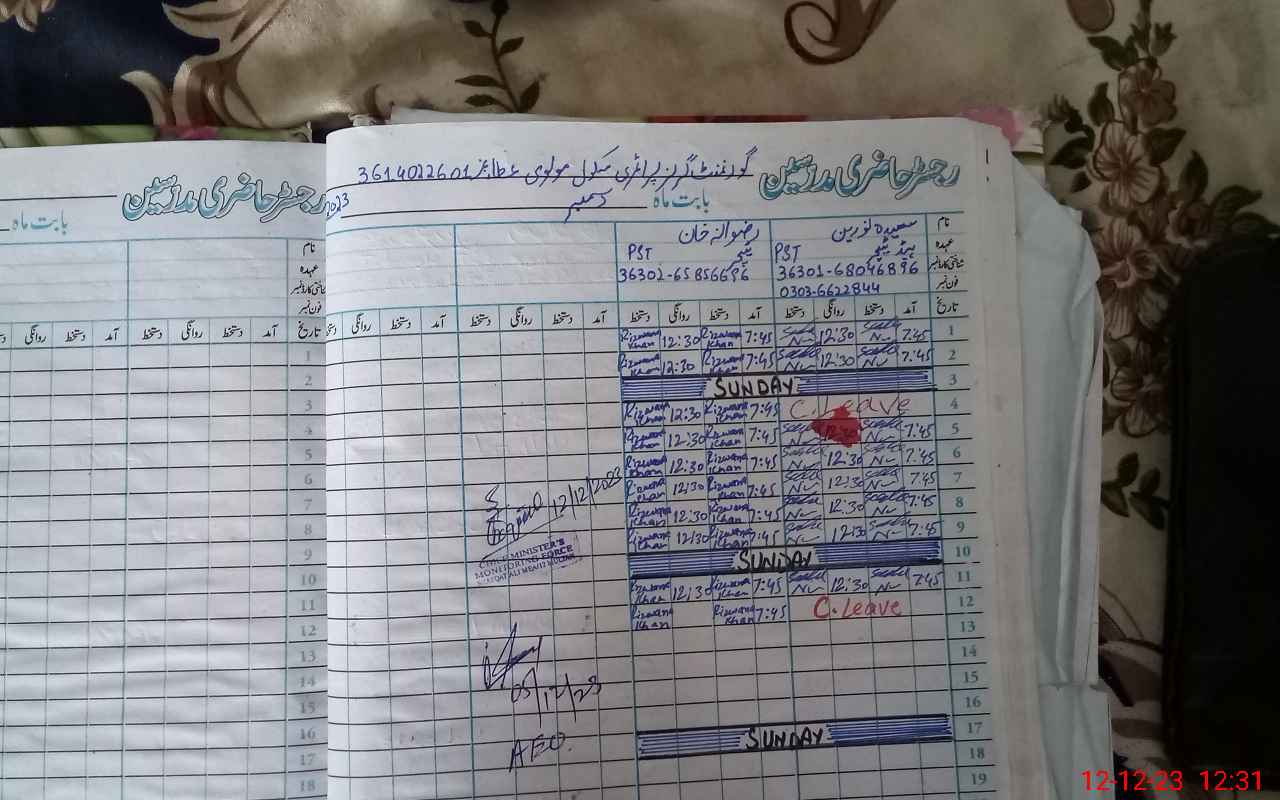 رجسٹر حاضری مدرسین گورنمنٹ گرلز پرائمری سکول مولوی عطا محمد 3614022601
بابت ماہ دسمبر 2023
نام سعیدہ نورین رضوانہ خان
عہدہ ہیڈ ٹیچر PST ٹیچر PST
شناختی کارڈ نمبر 36301-68046896 36302-65856696
فون نمبر 0303-6622844
تاریخ آمد دستخط روانگی دستخط آمد دستخط روانگی دستخط آمد دستخط روانگی دستخط آمد دستخط روانگی
1 7:45 12:30 7:45 Rizwana Khan 12:30 Rizwana Khan
2 7:45 12:30 7:45 Rizwana Khan 12:30 Rizwana Khan
3 SUNDAY
4 C. Leave 7:45 Rizwana Khan 12:30 Rizwana Khan
5 7:45 7:45 Rizwana Khan 12:30 Rizwana Khan
6 7:45 12:30 7:45 Rizwana Khan 12:30 Rizwana Khan
7 7:45 12:30 7:45 Rizwana Khan 12:30 Rizwana Khan
8 7:45 12:30 7:45 Rizwana Khan 12:30 Rizwana Khan
9 7:45 12:30 7:45 Rizwana Khan 12:30 Rizwana Khan
10 SUNDAY
11 7:45 12:30 7:45 Rizwana Khan 12:30 Rizwana Khan
12 C. Leave 7:45 Rizwana Khan Rizwana Khan
13
14
15
16
17 SUNDAY
18
19
12/12/2023
CHIEF MINISTER'S
MONITORING FORCE
05/12/23
AEO.
رجسٹر حاضری مدرسین
بابت ماہ
نام
عہدہ
شناختی کارڈ نمبر
فون نمبر
تاریخ آمد دستخط روانگی دستخط آمد دستخط روانگی
1
2
3
4
5
6
7
8
9
10
11
12
13
14
15
16
17
18
12-12-23 12:31